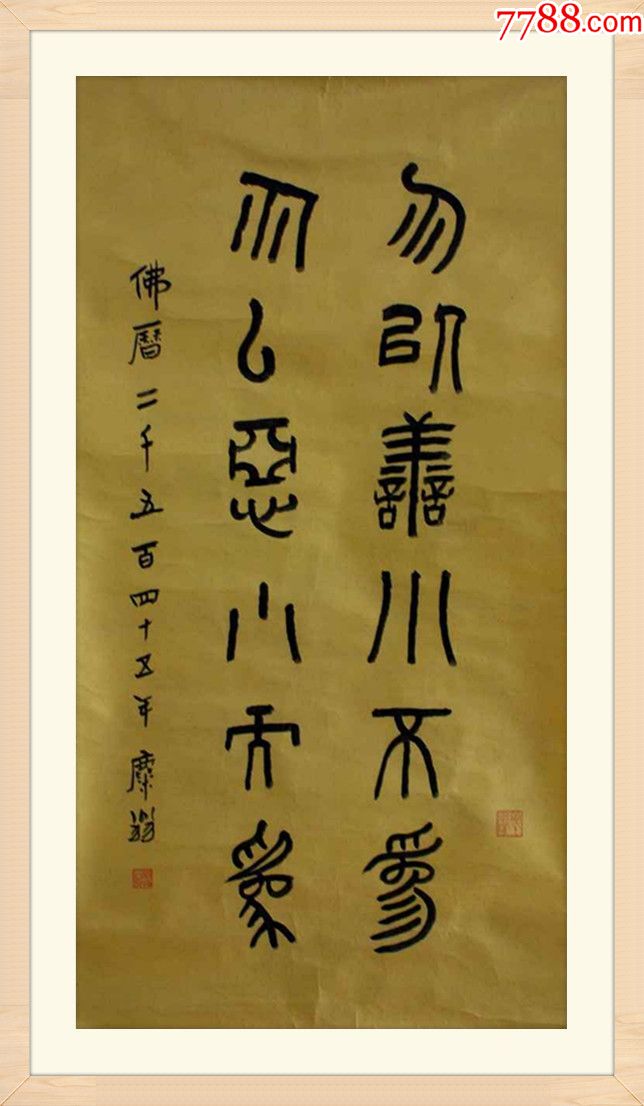 7788.com
勿以善小不為
以惡小而為
佛曆二千五百四十五年